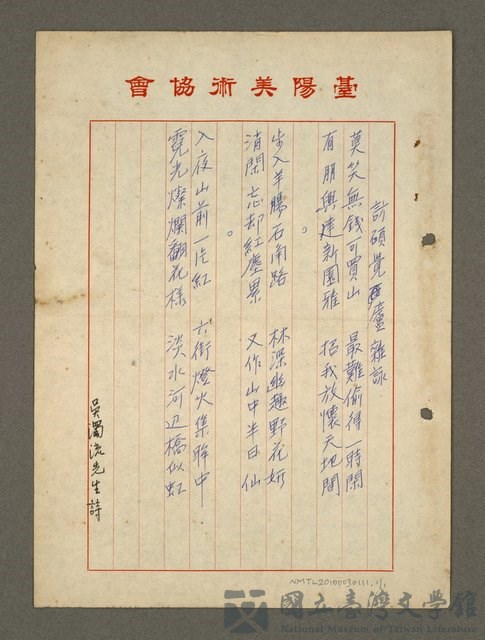 臺陽美術協會
碩覺廬雜詠
莫笑無錢可買山 最難偷得一時閑
有朋興建新園雅 招我放懷天地間
。
步入羊腸石角路 林深幽趣野花妍
清閑忘却紅塵累 又作山中半日仙
。
入夜山前一片紅 六街燈火集眸中
霓光燦爛翻花樣 淡水河辺橋似虹
吳濁流先生詩
NMTL20100030111
國立臺灣文學館
National Museum of Taiwan Literature